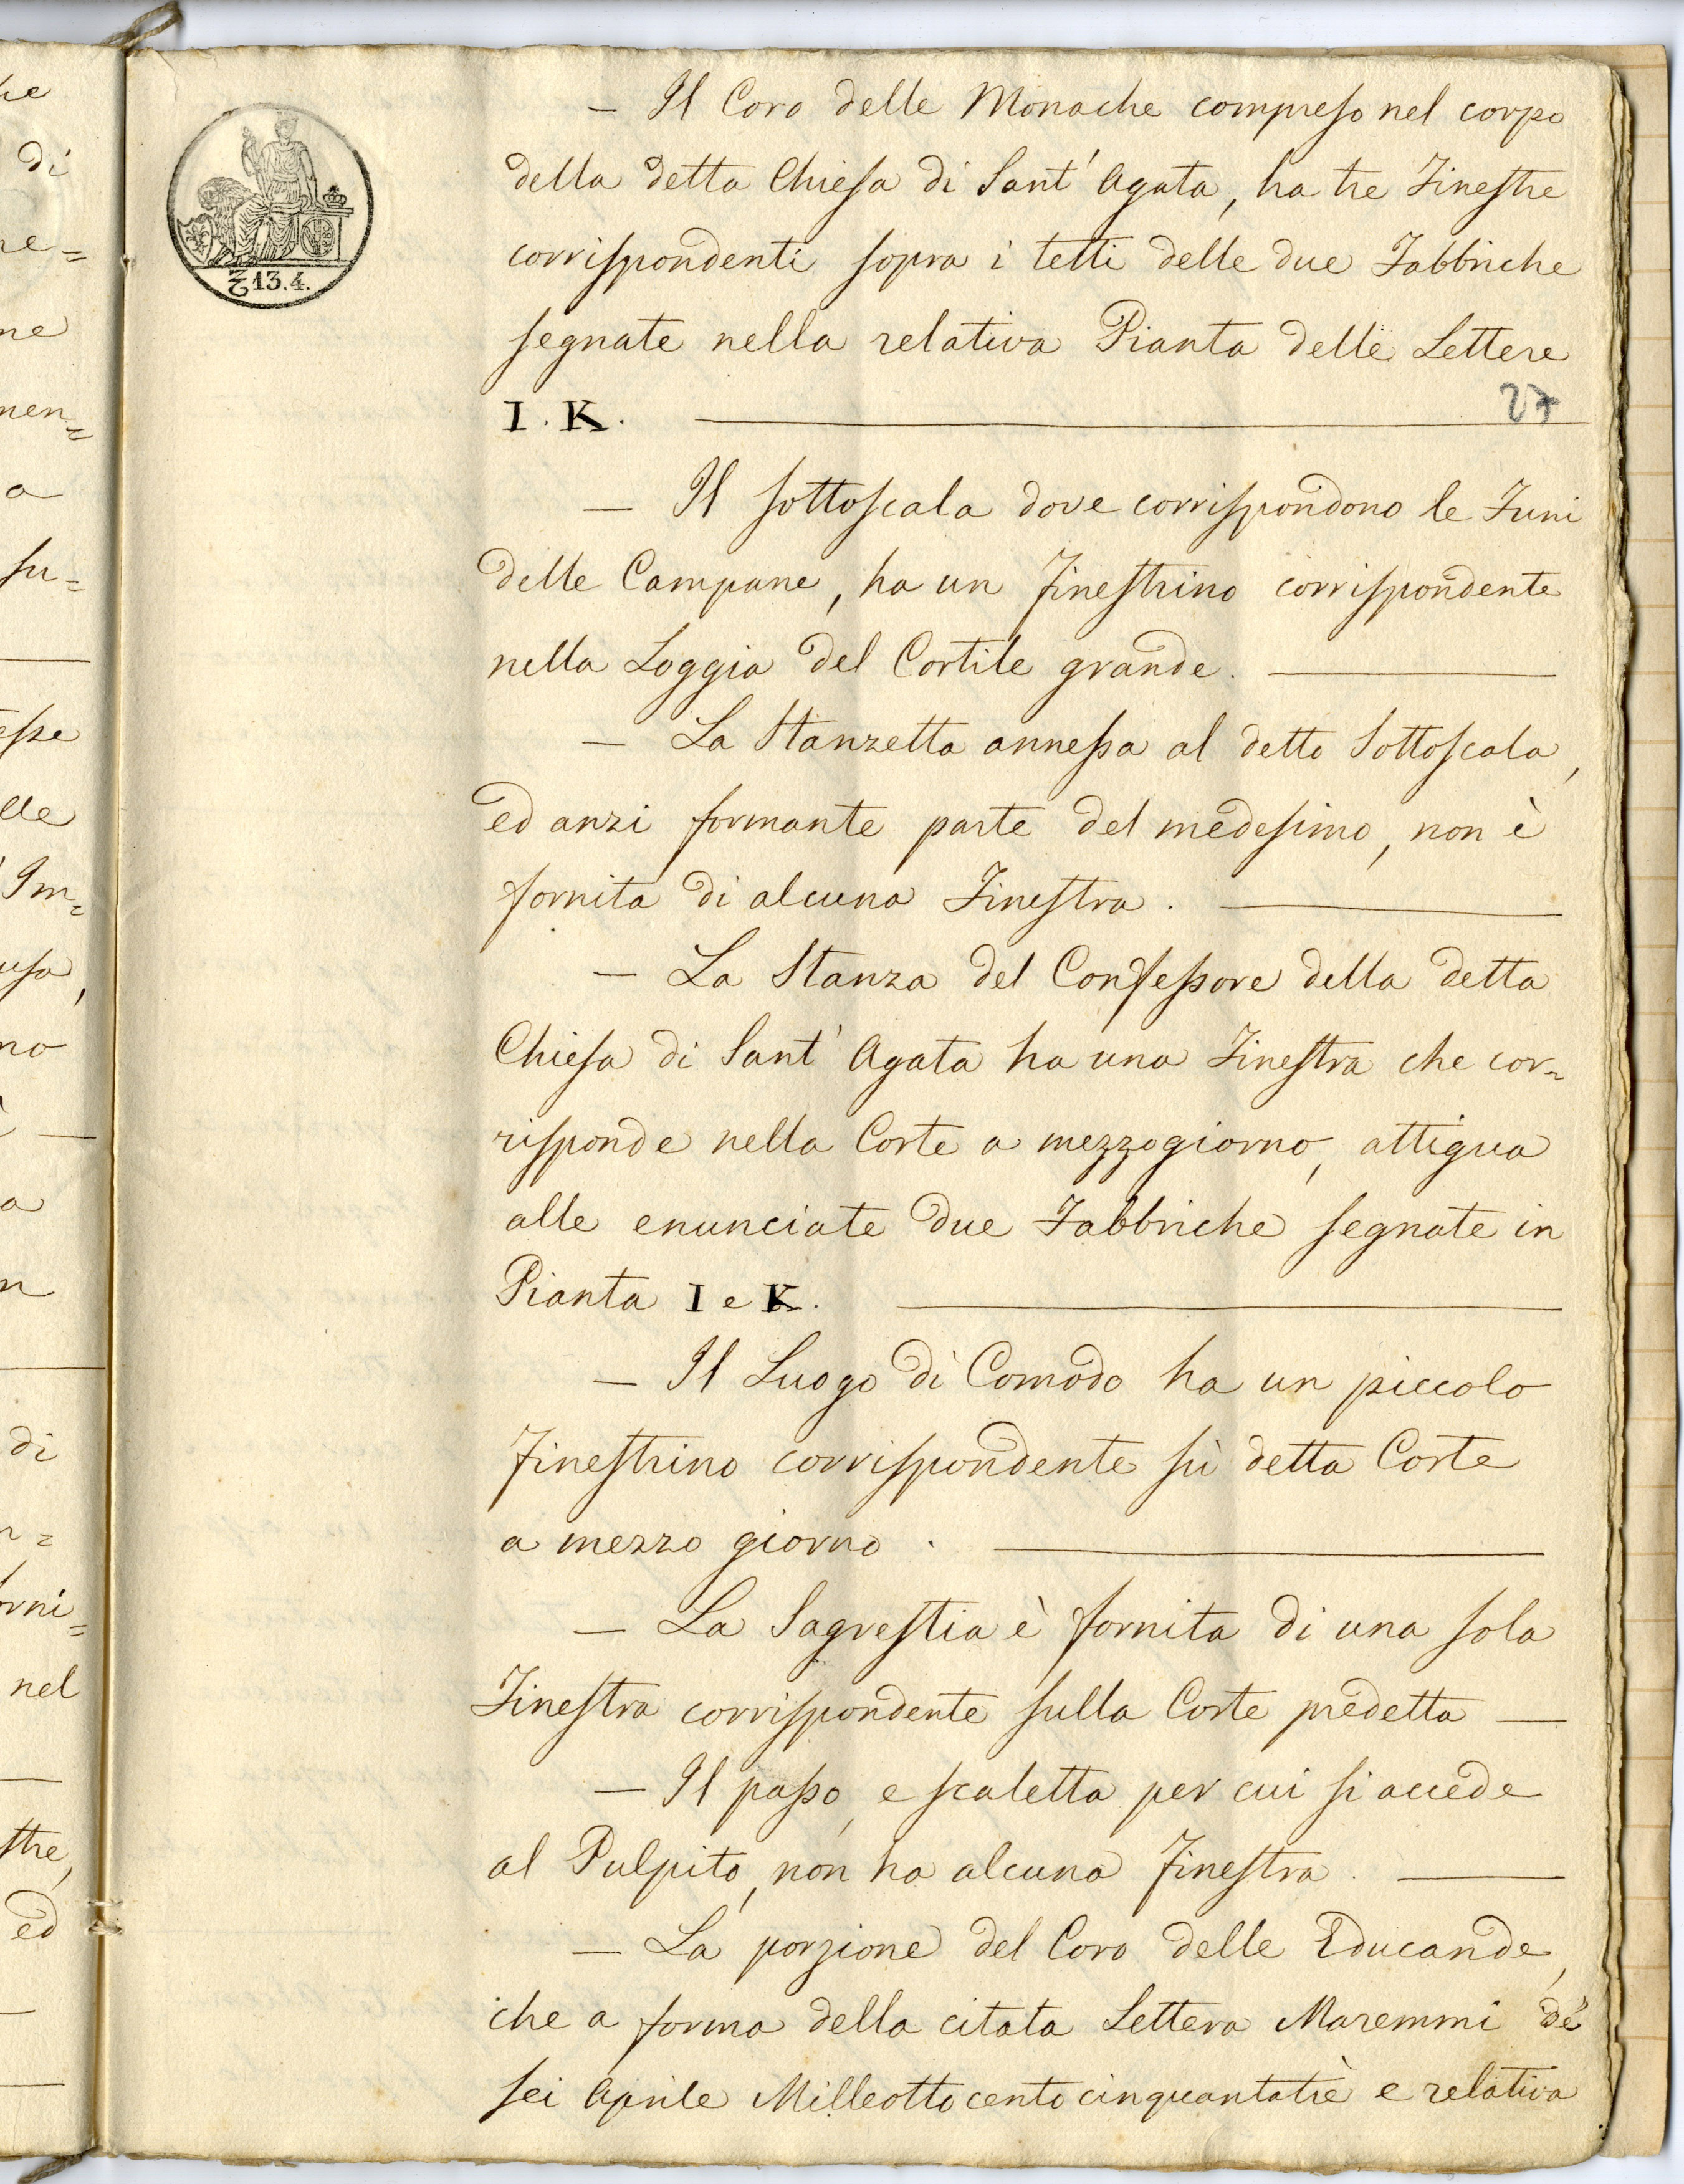 he
di
re=
ne
men=
a
su=
esse
lle
Im=
usa,
no
a
n
di
n=
orni=
nel
stre,
ed
₤13.4.
— Il Coro delle Monache compreso nel corpo
della detta Chiesa di Sant' Agata, ha tre Finestre
corrispondenti sopra i tetti delle due Fabbriche
segnate nella relativa Pianta delle Lettere
I. K.
27
— Il sottoscala dove corrispondono le Funi
delle Campane, ha un finestrino corrispondente
nella Loggia del Cortile grande. —
— La Stanzetta annessa al detto Sottoscala,
ed anzi formante parte del medesimo, non è
fornita di alcuna Finestra. —
— La Stanza del Confessore della detta
Chiesa di Sant' Agata ha una Finestra che cor=
risponde nella Corte a mezzogiorno, attigua
alle enunciate due Fabbriche segnate in
Pianta I e K. —
— Il Luogo di Comodo ha un piccolo
finestrino corrispondente sù detta Corte
a mezzo giorno. —
— La Sagrestia è fornita di una sola
Finestra corrispondente sulla Corte predetta —
— Il passo, e scaletta per cui si accede
al Pulpito, non ha alcuna finestra. —
— La porzione del Coro delle Educande,
che a forma della citata Lettera Maremmi de'
sei Aprile Milleottocentocinquantatrè e relativa